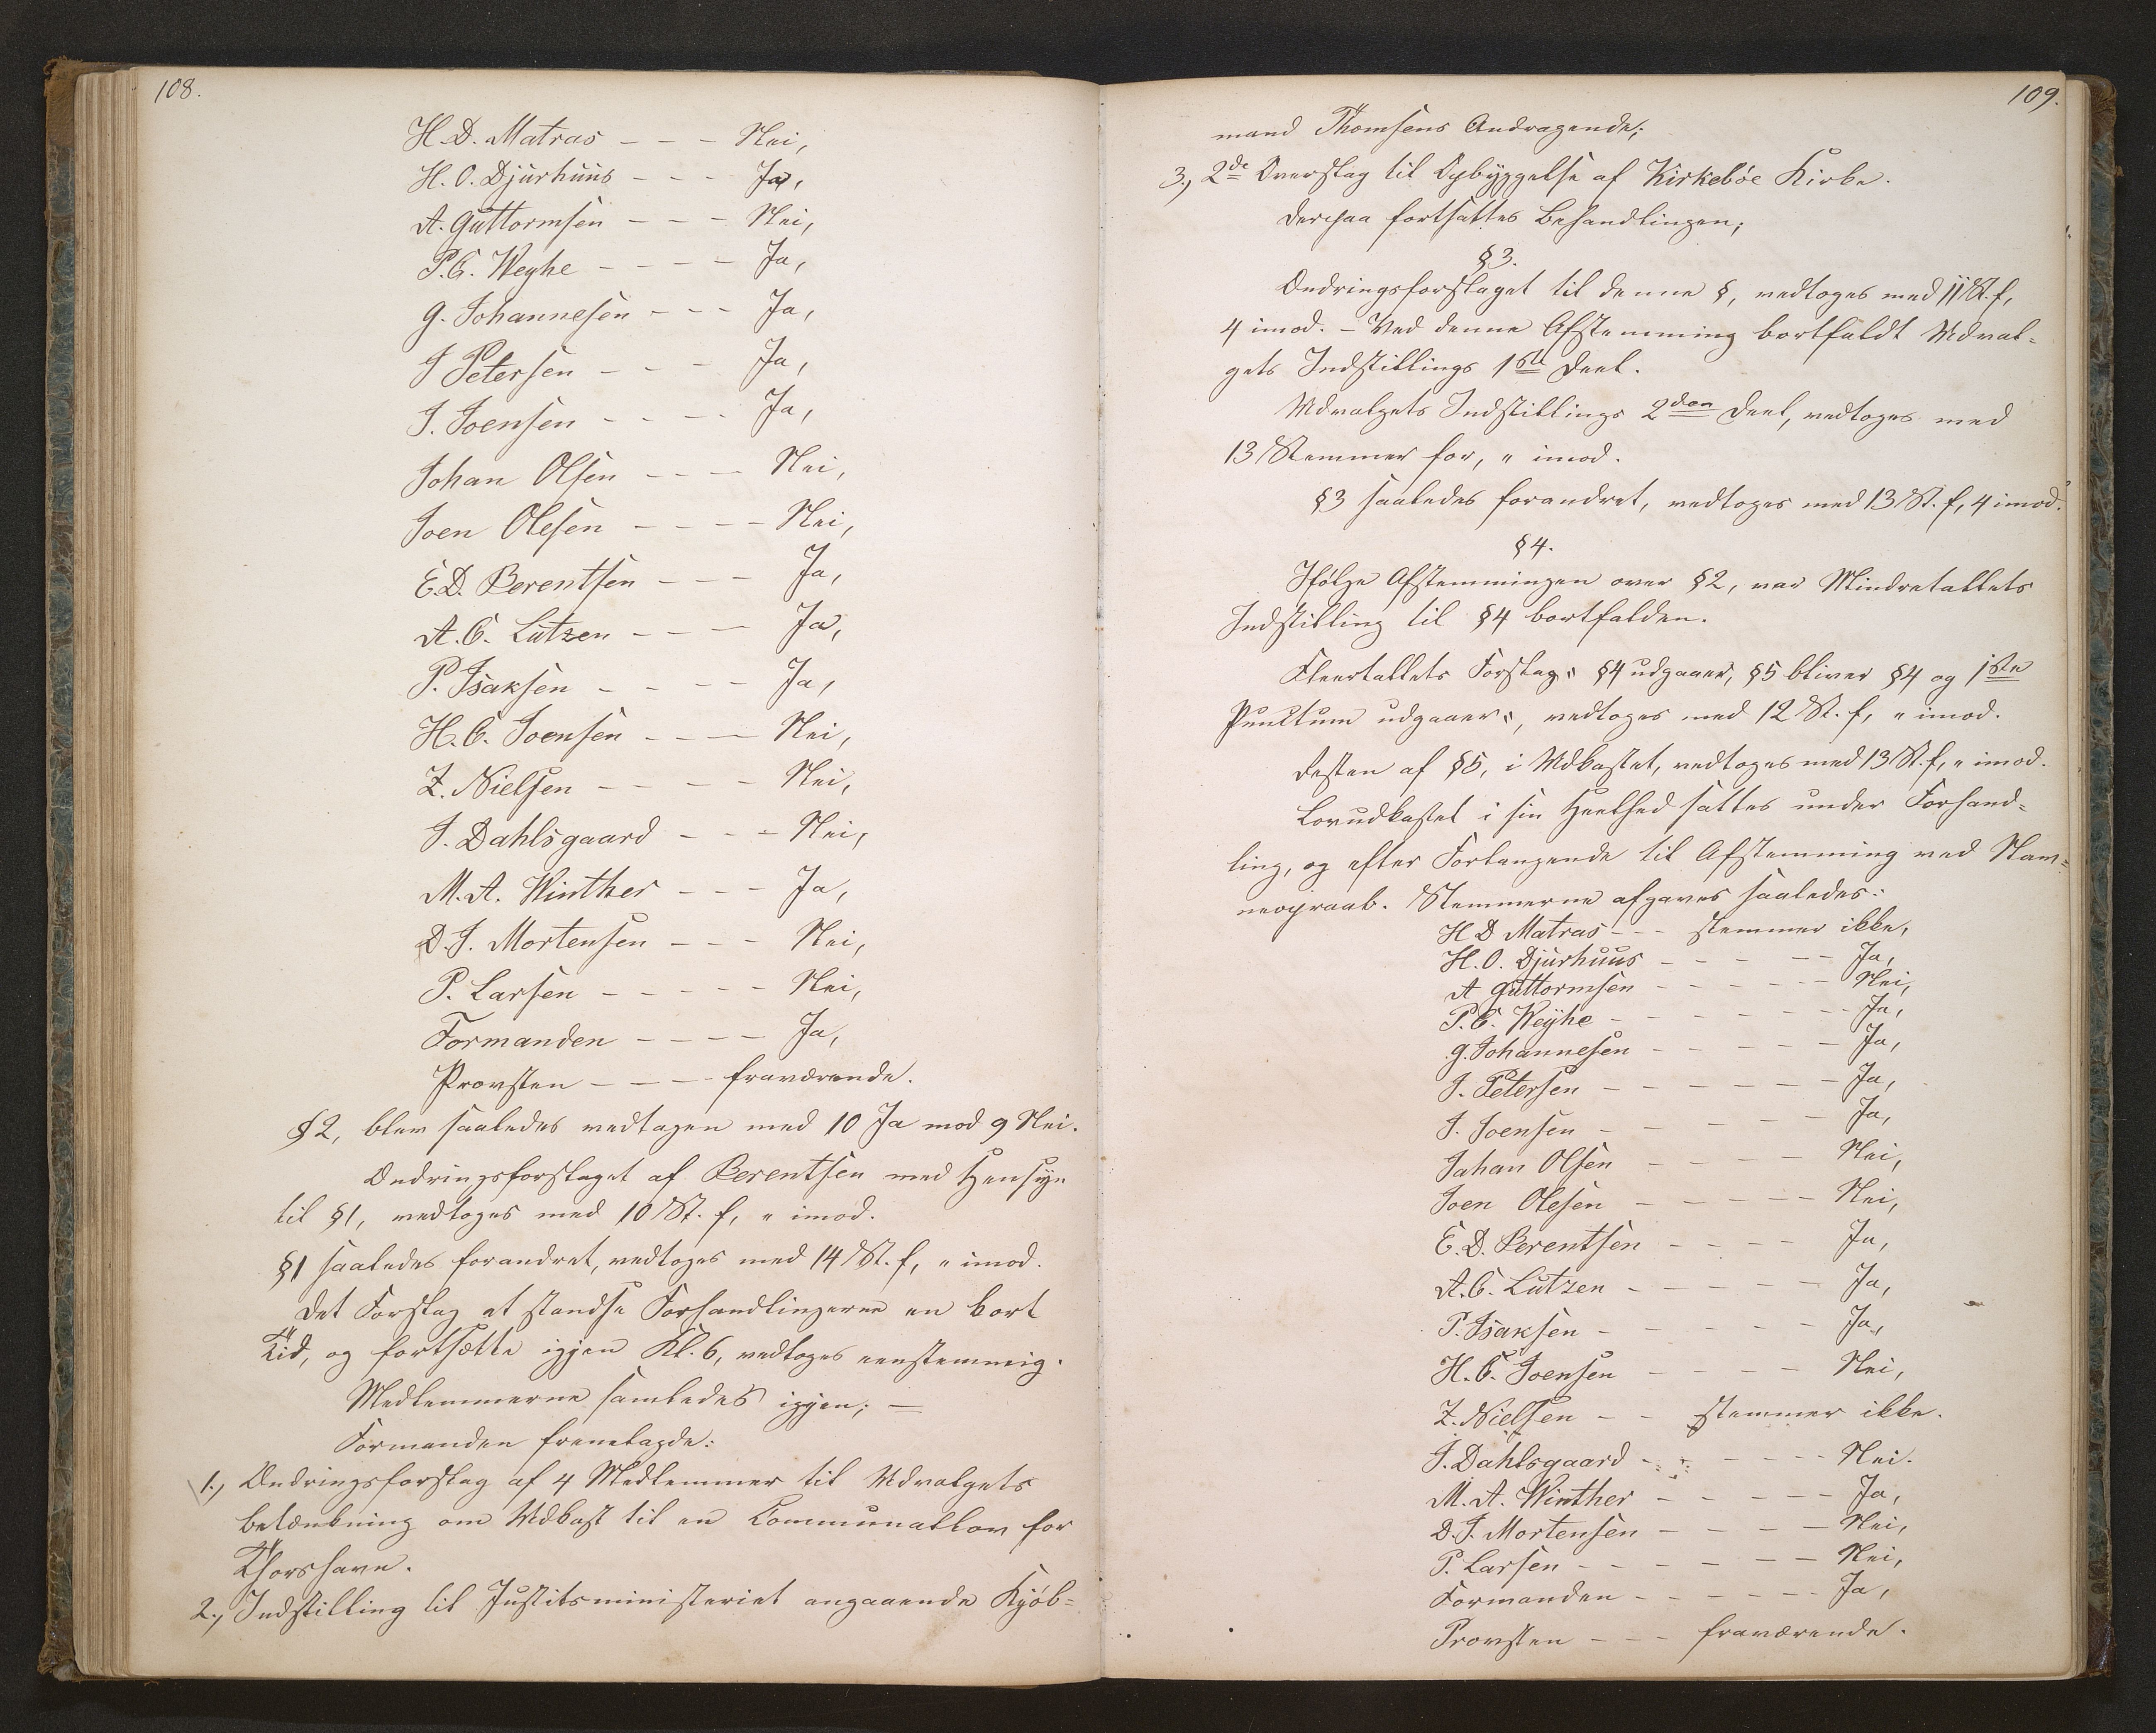 108.
H. D. Matras - - - Nei,
H. O. Djurhuus - - - Ja,
A. Guttormsen - - - Nei,
P. C. Weyhe - - - - Ja,
G. Johannesen - - - Ja,
J Petersen - - - Ja,
J. Joensen - - - - Ja,
Johan Olsen - - - Nei,
Joen Olesen - - - - Nei,
E. D. Berentsen - - - Ja,
A. C. Lützen - - - Ja,
P. Isaksen - - - - Ja,
H. C. Joensen - - - Nei,
Z. Nielsen - - - - Nei,
J. Dahlsgaard - - - Nei,
M. A. Winther - - - Ja,
D. J. Mortensen - - - Nei,
P. Larsen - - - - - Nei,
Formanden - - - - Ja,
Provsten - - - - fraværende.
§ 2, blev saaledes vedtagen med 10 Ja mod 9 Nei.
Ændringsforslaget af Berentsen med Hensyn
til § 1, vedtoges med 10 St. f, " imod.
§ 1 saaledes forandret, vedtoges med 14 St. f, " imod.
Det Forslag at standse Forhandlingerne en kort
Tid, og fortsætte igjen Kl. 6, vedtoges eenstemmig.
Medlemmerne samledes igjen; —
Formanden fremlagde:
1., Ændringsforslag af 4 Medlemmer til Udvalgets
Betænkning om Udkast til en Communallov for
Thorshavn.
2., Indstilling til Justitsministeriet angaaende Kjøb-
109.
mand Thomsens Andragende;
3., 2de Overslag til Opbyggelse af Kirkebøe Kirke.
Derpaa fortsattes Behandlingen;
§ 3.
Ændringsforslaget til denne §, vedtoges med 11 St. f,
4 imod. - Ved denne Afstemming bortfaldt Udval-
gets Indstillings 1ste Deel.
Udvalgets Indstillings 2den Deel, vedtoges med
13 Stemmer for, " imod.
§ 3 saaledes forandret, vedtoges med 13 St. f, 4 imod.
§ 4.
Ifølge Afstemmingen over § 2, var Mindretallets
Indstilling til § 4 bortfalden.
Fleertallets Forslag: § 4 udgaaer, § 5 bliver § 4 og 1ste
Punctum udgaaer:, vedtoges med 12 St. f, " imod.
Resten af § 5, i Udkastet, vedtoges med 13 St. f, " imod.
Lovudkastet i sin Heelhed sattes under Forhand-
ling, og efter Forlangende til Afstemming ved Nav-
neopraab. Stemmerne afgaves saaledes:
H D Matras - - - stemmer ikke,
H. O. Djurhuus - - - - - Ja,
A Guttormsen - - - - - - Nei,
P. C. Weyhe - - - - - - - Ja,
G. Johannesen - - - - - Ja,
J. Petersen - - - - - - Ja,
J. Joensen - - - - - Ja,
Johan Olsen - - - - Nei,
Joen Olesen - - - - - Nei,
E. D. Berentsen - - - - Ja,
A. C. Lützen - - - - - Ja,
P. Isaksen - - - - - Ja,
H. C. Joensen - - - - Nei,
Z. Nielsen - - stemmer ikke.
J. Dahlsgaard - - - - - - Nei.
M. A. Winther - - - - - Ja,
D. J. Mortensen - - - - Nei,
P. Larsen - - - - - - Nei,
Formanden - - - - - - Ja,
Provsten - - - fraværende.